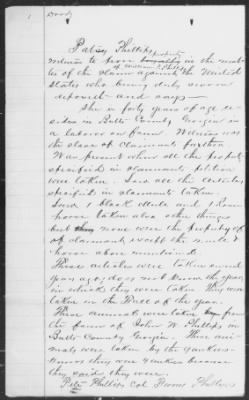 Patsey Phillips
witness to prove property in the mat-
of William J Phillips
ter of the claim against the United
States who being duly sworn
deposeth and says—
She is forty years of age re-
sides in Butts County Georgia is
a laborer on farm Witness was
the slave of claimants father
Was present when all the property
specified in claimants petition
were taken. Saw all the articles
specified in claimants taken
Saw 1 black Mule and 1 Roan
horse taken also other things
but none were the property of
of claimant except the mule &
horse above mentioned
These articles were taken several
years ago, do not know the year
in which they were taken They were
taken in the Fall of the year.
These animals were taken from
the farm of John W Phillips in
Butts County Georgia. These ani-
mals were taken by the yankees
knows they were yankees because
they said they were.
Phillips Col